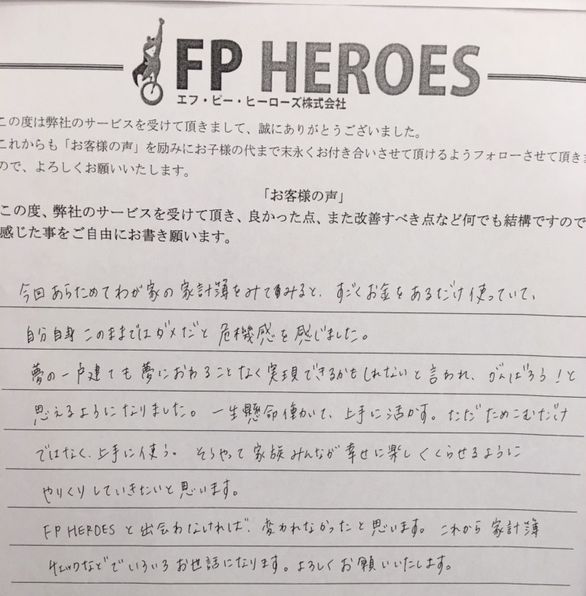 FP HEROES
エフ・ピー・ヒーローズ株式会社
この度は弊社のサービスを受けて頂きまして、誠にありがとうございました。
これからも「お客様の声」を励みにお子様の代まで末永くお付き合いさせて頂けるようフォローさせて頂きま
ので、よろしくお願いいたします。
「お客様の声」
この度、弊社のサービスを受けて頂き、良かった点、また改善すべき点など何でも結構ですので
感じた事をご自由にお書き願います。
今回あらためてわが家の家計簿をみてみると、すごくお金をあるだけ使っていて、
自分自身このままではダメだと危機感を感じました。
夢の一戸建ても夢におわることなく実現できるかもしれないと言われ、がんばろう!と
思えるようになりました。一生懸命働いて、上手に活かす。ただためこむだけ
ではなく、上手に使う。そうやって家族みんなが幸せに楽しくくらせるように
やりくりしていきたいと思います。
FP HEROESと出会わなければ、変われなかったと思います。これから家計簿
チェックなどでいろいろお世話になります。よろしくお願いいたします。